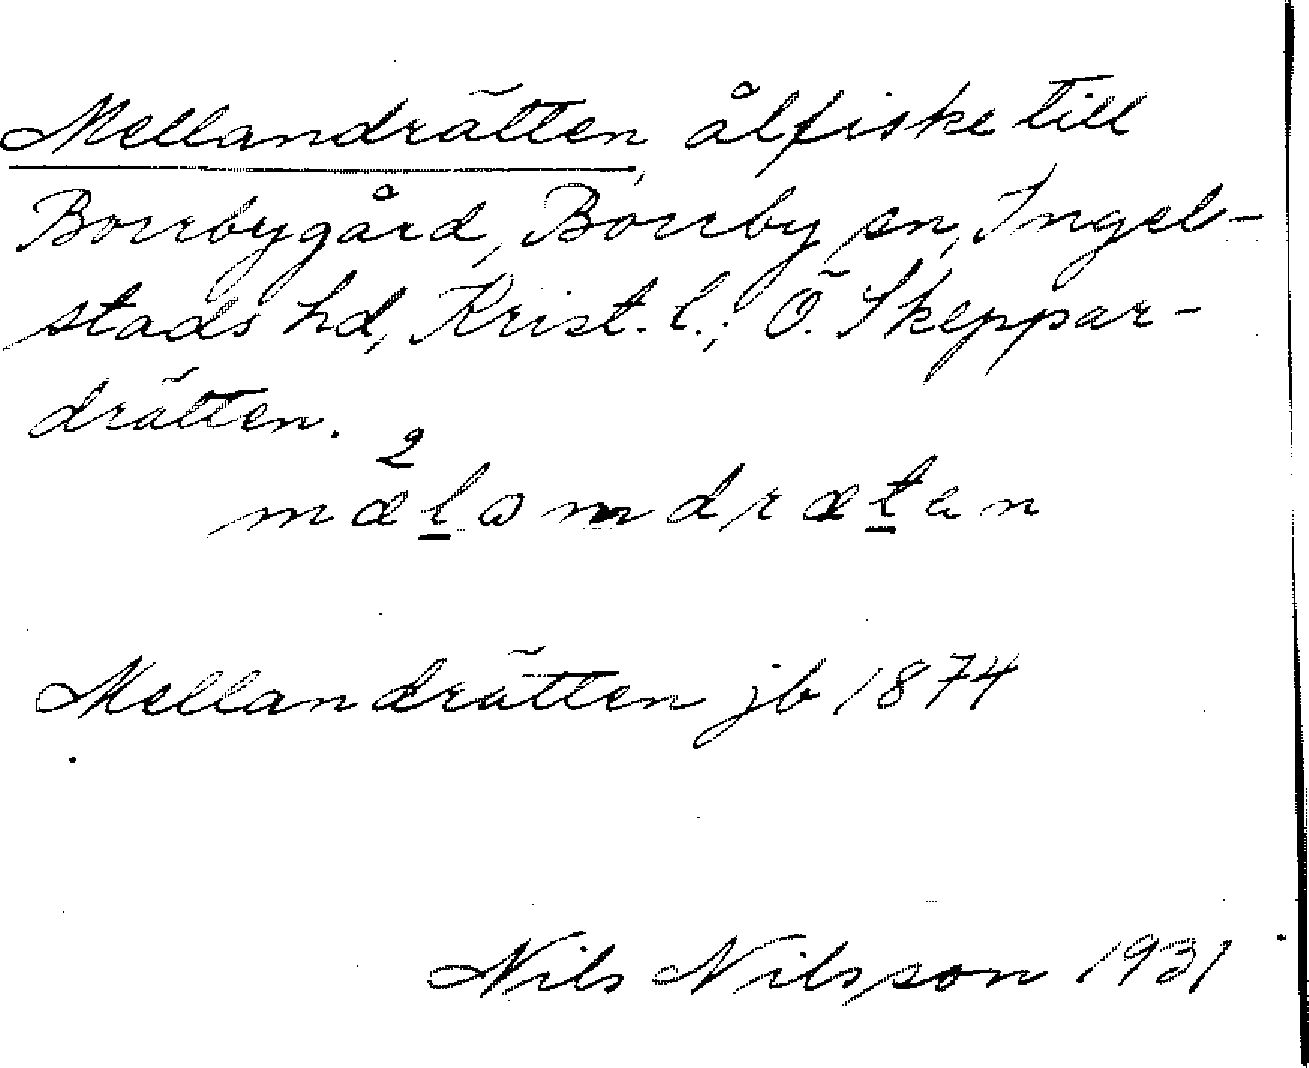 Mellandrätten, ålfiske till
Borrbygård, Borrby sn, Ingel-
stads hd, Krist. l.; Ö. Skeppar-
drätten.
2
mælandrætan
Mellandrätten jb 1874
Nils Nilsson 1931